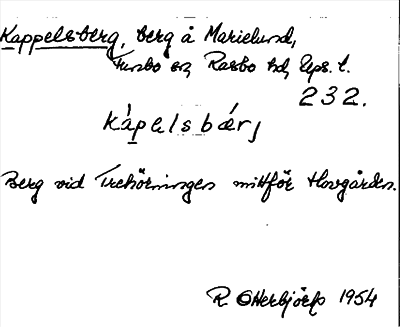 Kappelsberg, berg å Marielund,
Funbo sn, Rasbo hd, Ups. l.
232.
kàpelsbærj
Berg vid Trehörningen mittför Hovgården.
R. Otterbjörk 1954